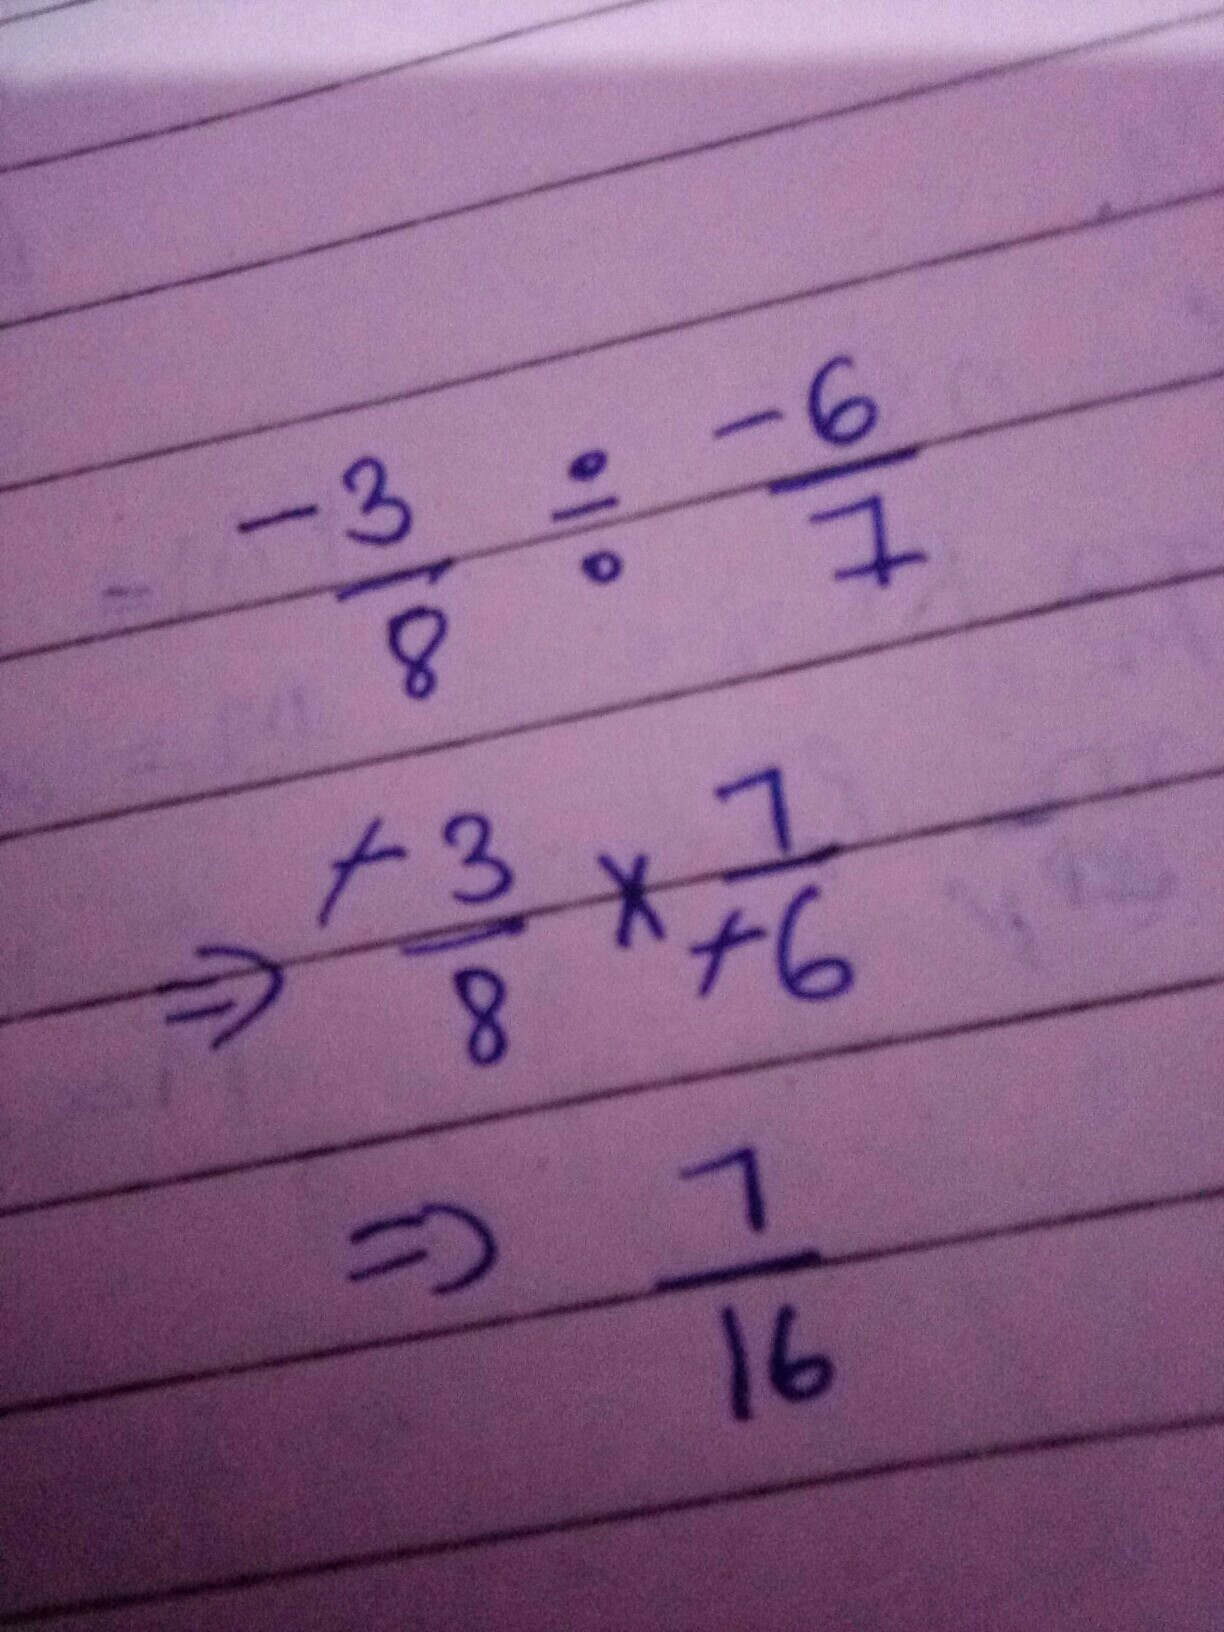 -3/8 ÷ -6/7
⇒ +3/8 × 7/+6
⇒ 7/16